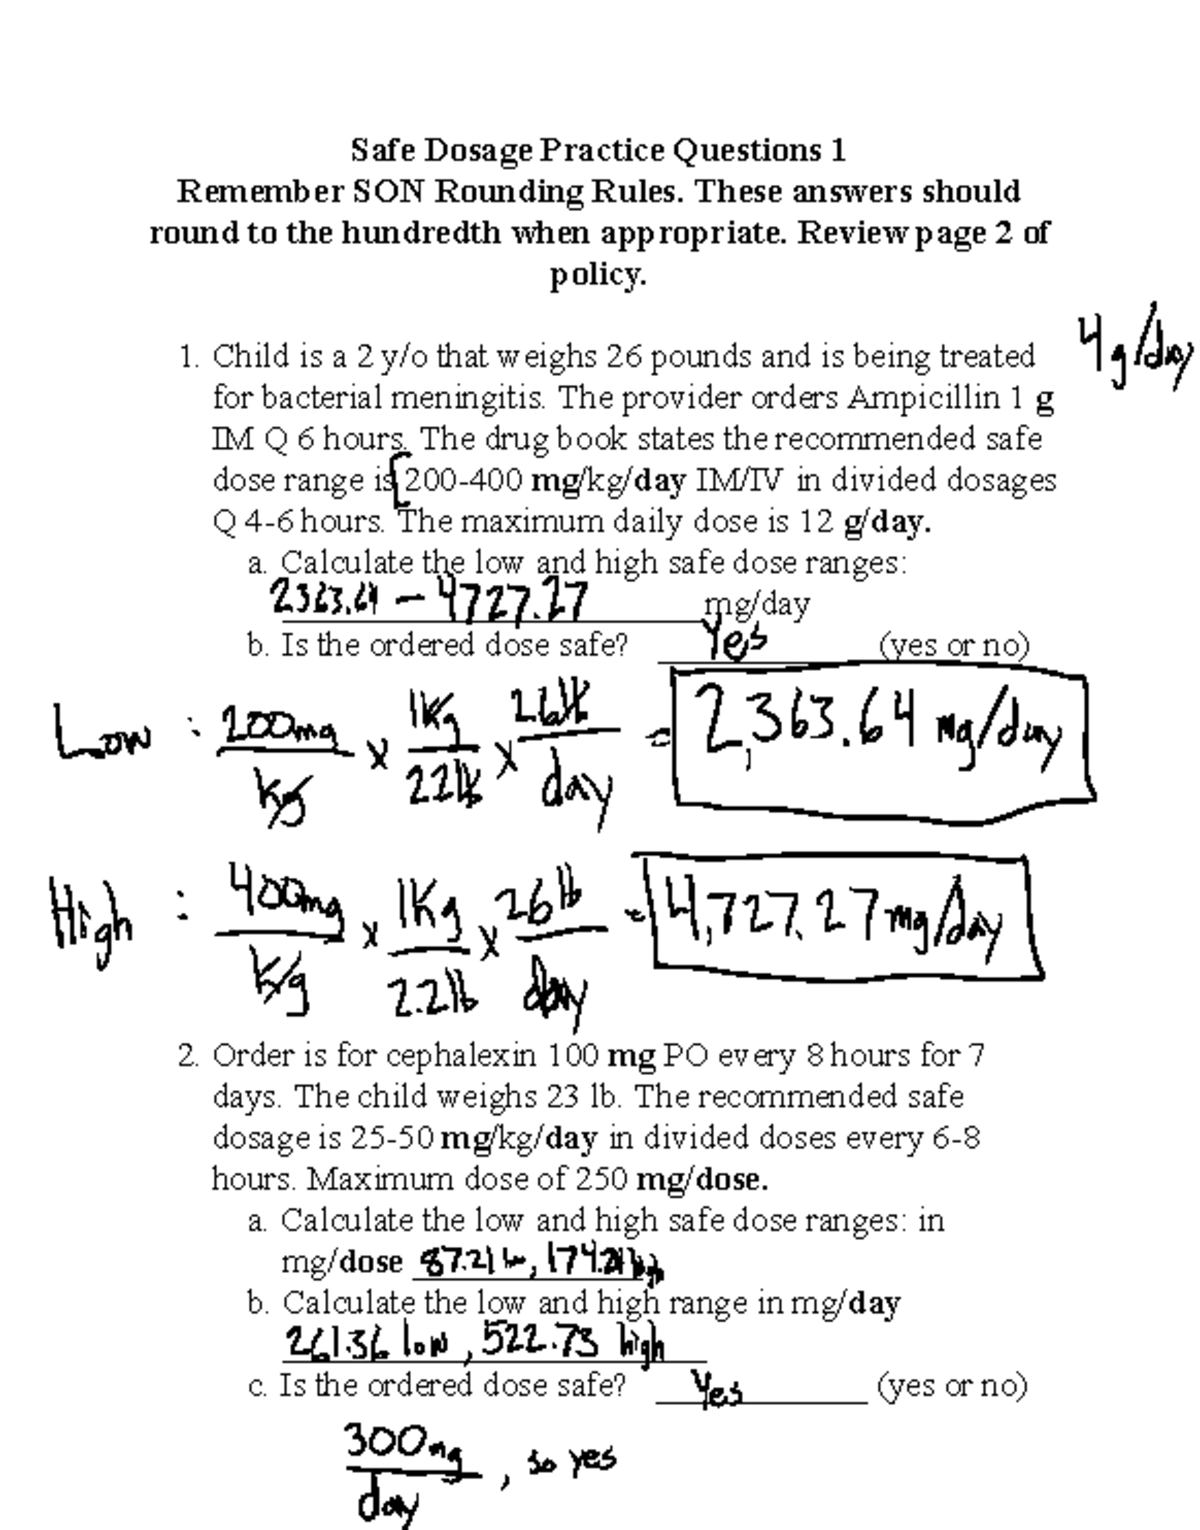 Safe Dosage Practice Questions 1
Remember SON Rounding Rules. These answers should
round to the hundredth when appropriate. Review page 2 of
policy.
4g/day
1. Child is a 2 y/o that weighs 26 pounds and is being treated
for bacterial meningitis. The provider orders Ampicillin 1 g
IM Q 6 hours. The drug book states the recommended safe
dose range is [200-400 mg/kg/day IM/IV in divided dosages
Q 4-6 hours. The maximum daily dose is 12 g/day.
a. Calculate the low and high safe dose ranges:
2363.64 - 4727.27 mg/day
b. Is the ordered dose safe? Yes (yes or no)
Low : 200mg/kg x 1kg/2.2lb x 26lb/day = 2,363.64 mg/day
High : 400mg/kg x 1kg/2.2lb x 26lb/day = 4,727.27 mg/day
2. Order is for cephalexin 100 mg PO every 8 hours for 7
days. The child weighs 23 lb. The recommended safe
dosage is 25-50 mg/kg/day in divided doses every 6-8
hours. Maximum dose of 250 mg/dose.
a. Calculate the low and high safe dose ranges: in
mg/dose 87.21 low, 174.24 high
b. Calculate the low and high range in mg/day
261.36 low, 522.73 high
c. Is the ordered dose safe? Yes (yes or no)
300mg/day, so yes